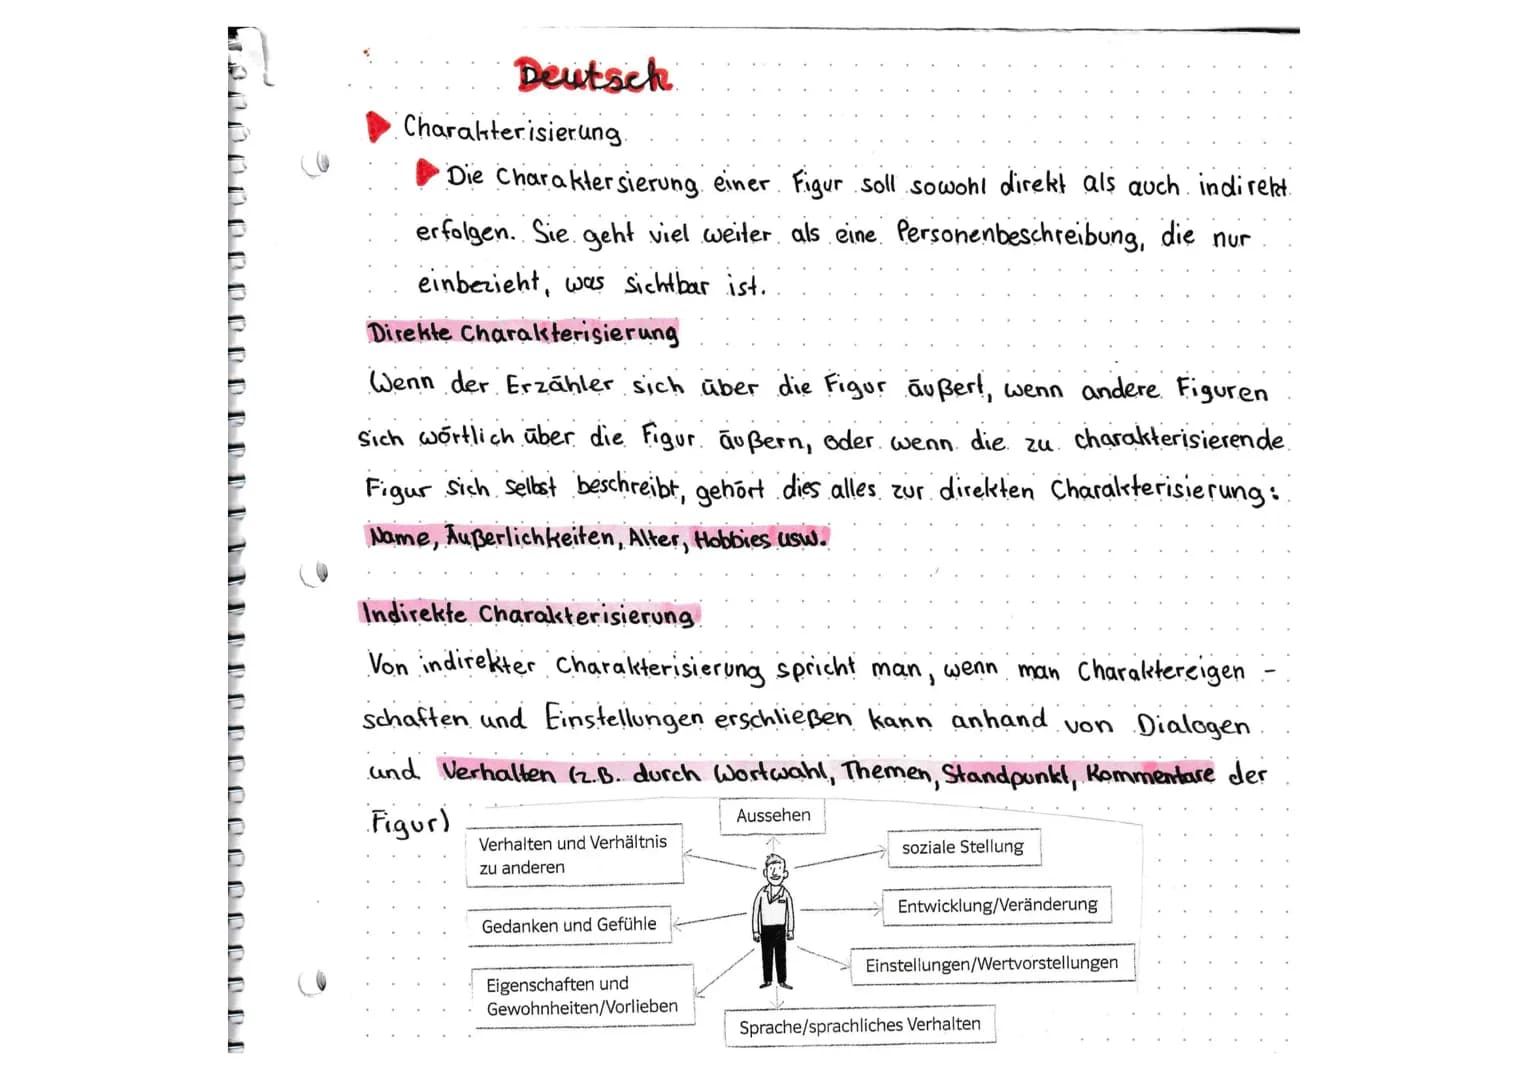 Deutsch
Charakterisierung
Die Charaktersierung einer Figur soll sowohl direkt als auch indirekt
erfolgen. Sie geht viel weiter als eine Personenbeschreibung, die nur
einbezieht, was sichtbar ist.
Direkte Charakterisierung
Wenn der Erzähler sich über die Figur äußert, wenn andere Figuren
sich wörtlich über die Figur äußern, oder wenn die zu charakterisierende
Figur sich selbst beschreibt, gehört dies alles zur direkten Charakterisierung:
Name, Äußerlichkeiten, Alter, Hobbies usw.
Indirekte Charakterisierung
Von indirekter Charakterisierung spricht man, wenn man Charaktereigen-
schaften und Einstellungen erschließen kann anhand von Dialogen
und Verhalten (z.B. durch Wortwahl, Themen, Standpunkt, Kommentare der
Figur)
Aussehen
Verhalten und Verhältnis
zu anderen
soziale Stellung
Gedanken und Gefühle
Entwicklung/Veränderung
Einstellungen/Wertvorstellungen
Eigenschaften und
Gewohnheiten/Vorlieben
Sprache/sprachliches Verhalten